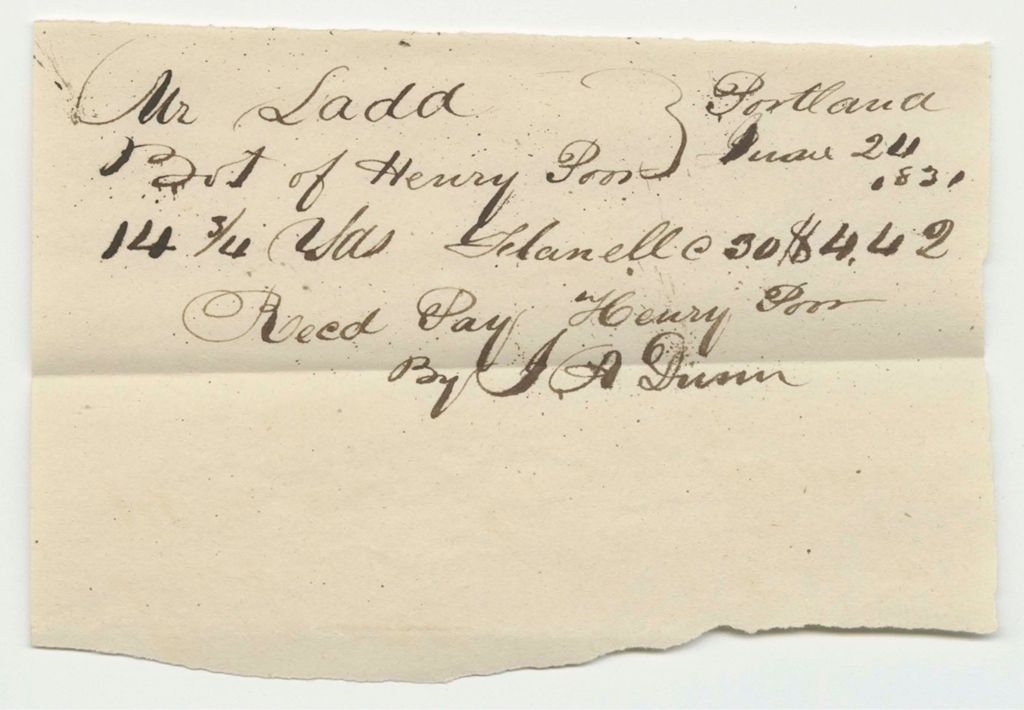 Mr Ladd Portland
June 24
Bot of Henry Poor 1831
14 3/4 Yds Flanell @ 30 $4,42
Recd Pay Henry Poor
By J A Dunn